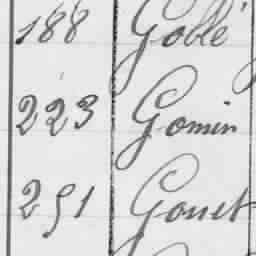 188 Goblé
223 Gomin
251 Gouet